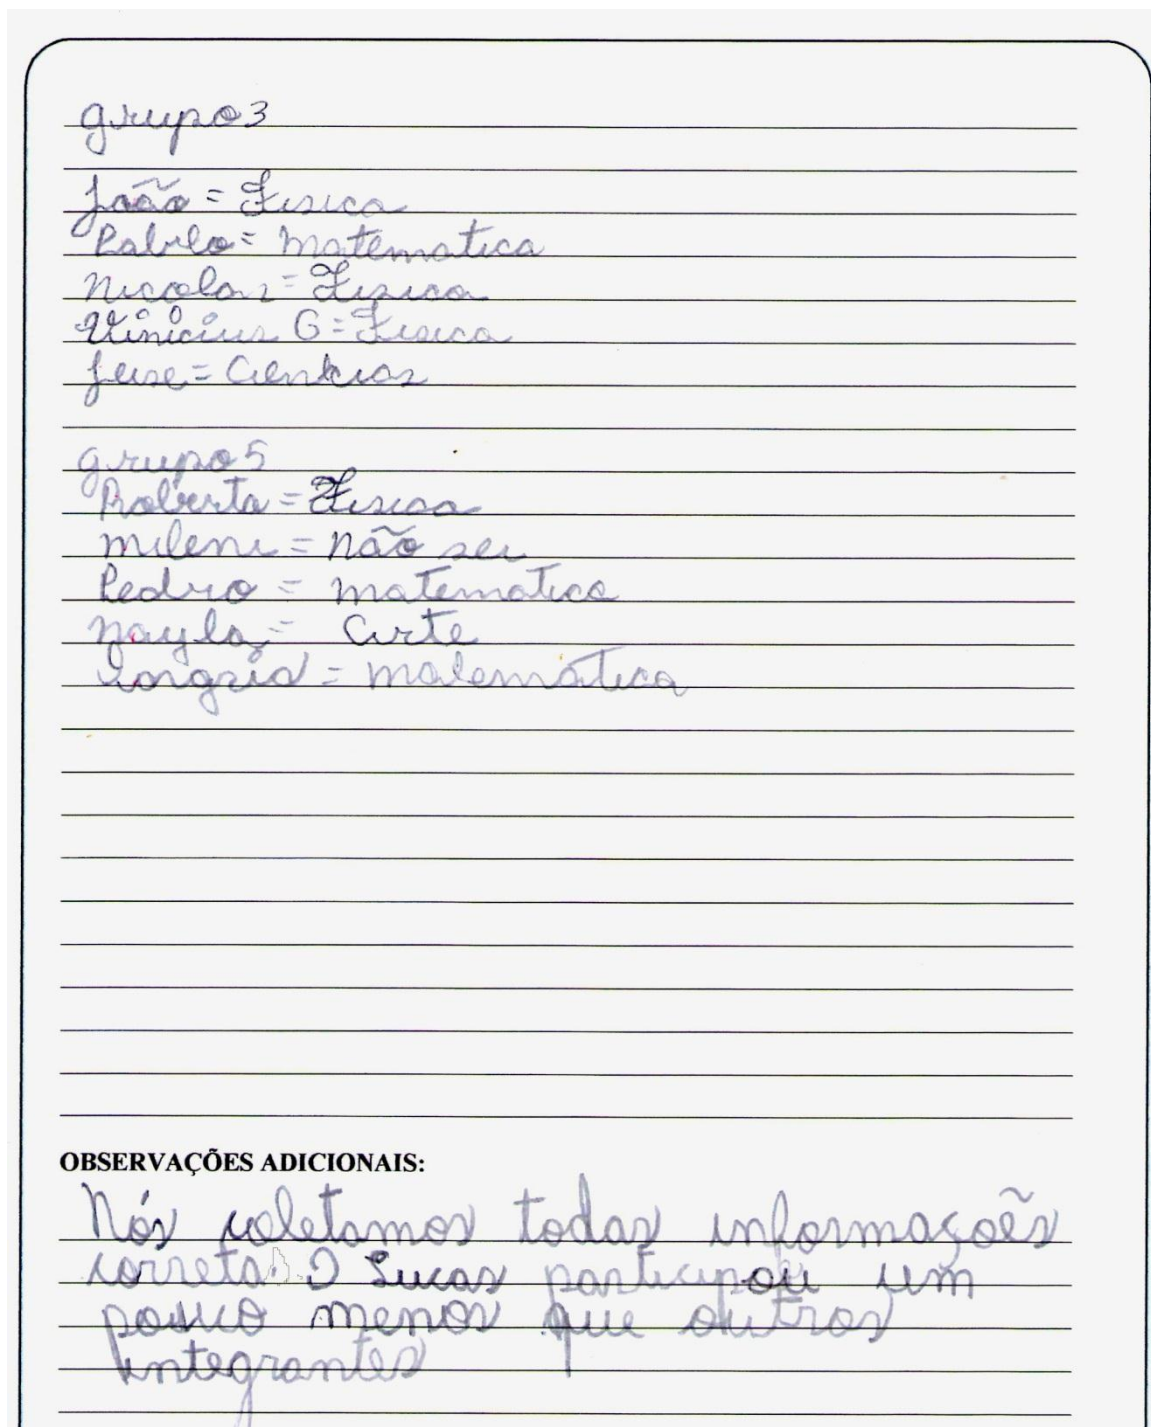 grupo 3
João = Fisica
Pablo = matematica
Nicolas = Fisica
Vinicius G = Fisica
= Ciencias
grupo 5
Roberta = Fisica
mileni = não sei
Pedro = matematica
Nayla = Arte
= matemática
OBSERVAÇÕES ADICIONAIS:
Nós coletamos todas informações
correta. O Lucas participou um
pouco menos que outros
integrantes